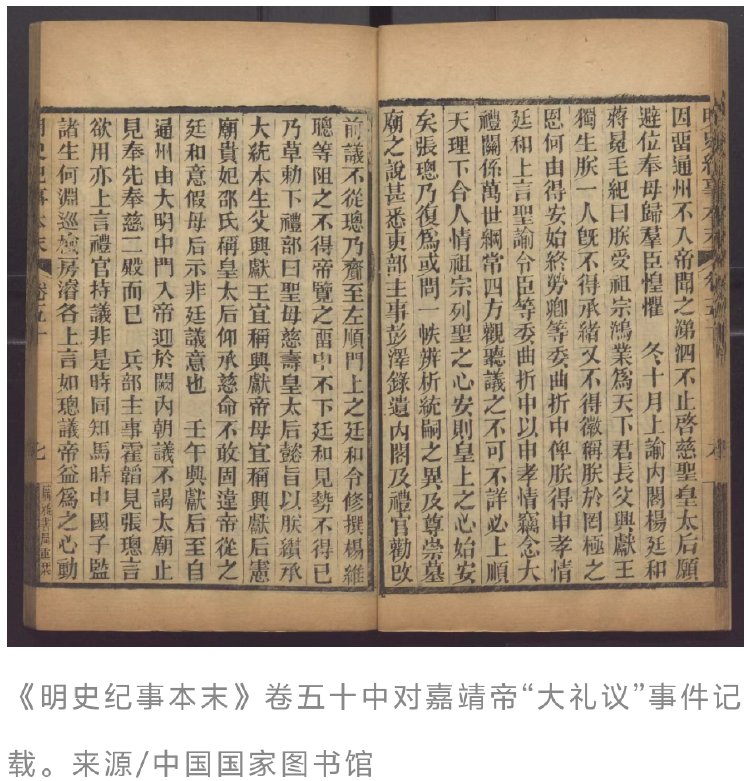 明史紀事本末 卷五十
因畱通州不入帝聞之涕泗不止啓慈聖皇太后願
避位奉母歸羣臣惶懼 冬十月上諭内閣楊廷和
蔣冕毛紀曰朕受祖宗鴻業爲天下君長父興獻王
獨生朕一人旣不得承緒又不得徽稱朕於罔極之
恩何由得安始終勞卿等委曲折中俾朕得申孝情
廷和上言聖諭令臣等委曲折中以申孝情竊念大
禮關係萬世綱常四方觀聽議之不可不詳必上順
天理下合人情祖宗列聖之心安則皇上之心始安
矣張璁乃復爲或問一帙辨析統嗣之異及尊崇墓
廟之說甚悉吏部主事彭澤錄遺内閣及禮官勸改
前議不從璁乃齎至左順門上之廷和令修撰楊維
聰等阻之不得帝覽之畱中不下廷和見勢不得已
乃草勅下禮部曰聖母慈壽皇太后懿旨以朕纘承
大統本生父興獻王宜稱興獻帝母宜稱興獻后憲
廟貴妃邵氏稱皇太后仰承慈命不敢固違帝從之
廷和意假母后示非廷議意也 壬午興獻后至自
通州由大明中門入帝迎於闕内朝議不謁太廟止
見奉先奉慈二殿而已 兵部主事霍韜見張璁言
欲用亦上言禮官持議非是時同知馬時中國子監
諸生何淵巡檢房濬各上言如璁議帝益爲之心動
明史紀事本末 卷五十 七 廣雅書局重栞
《明史纪事本末》卷五十中对嘉靖帝“大礼议”事件记
载。来源/中国国家图书馆